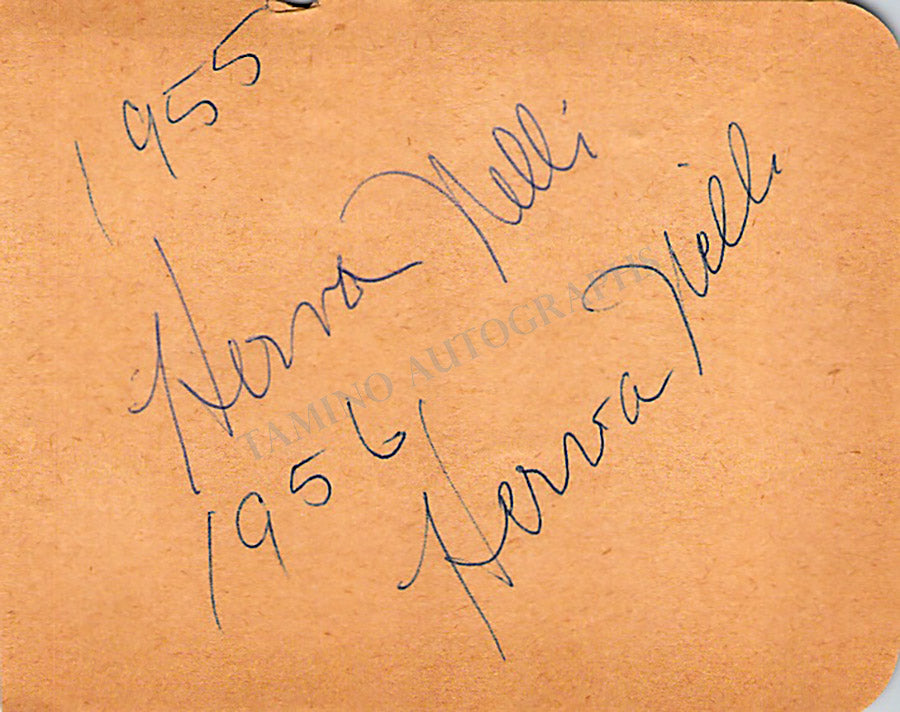 1955
Herva Nelli
1956
Herva Nelli
TAMINO AUTOGRAPHS